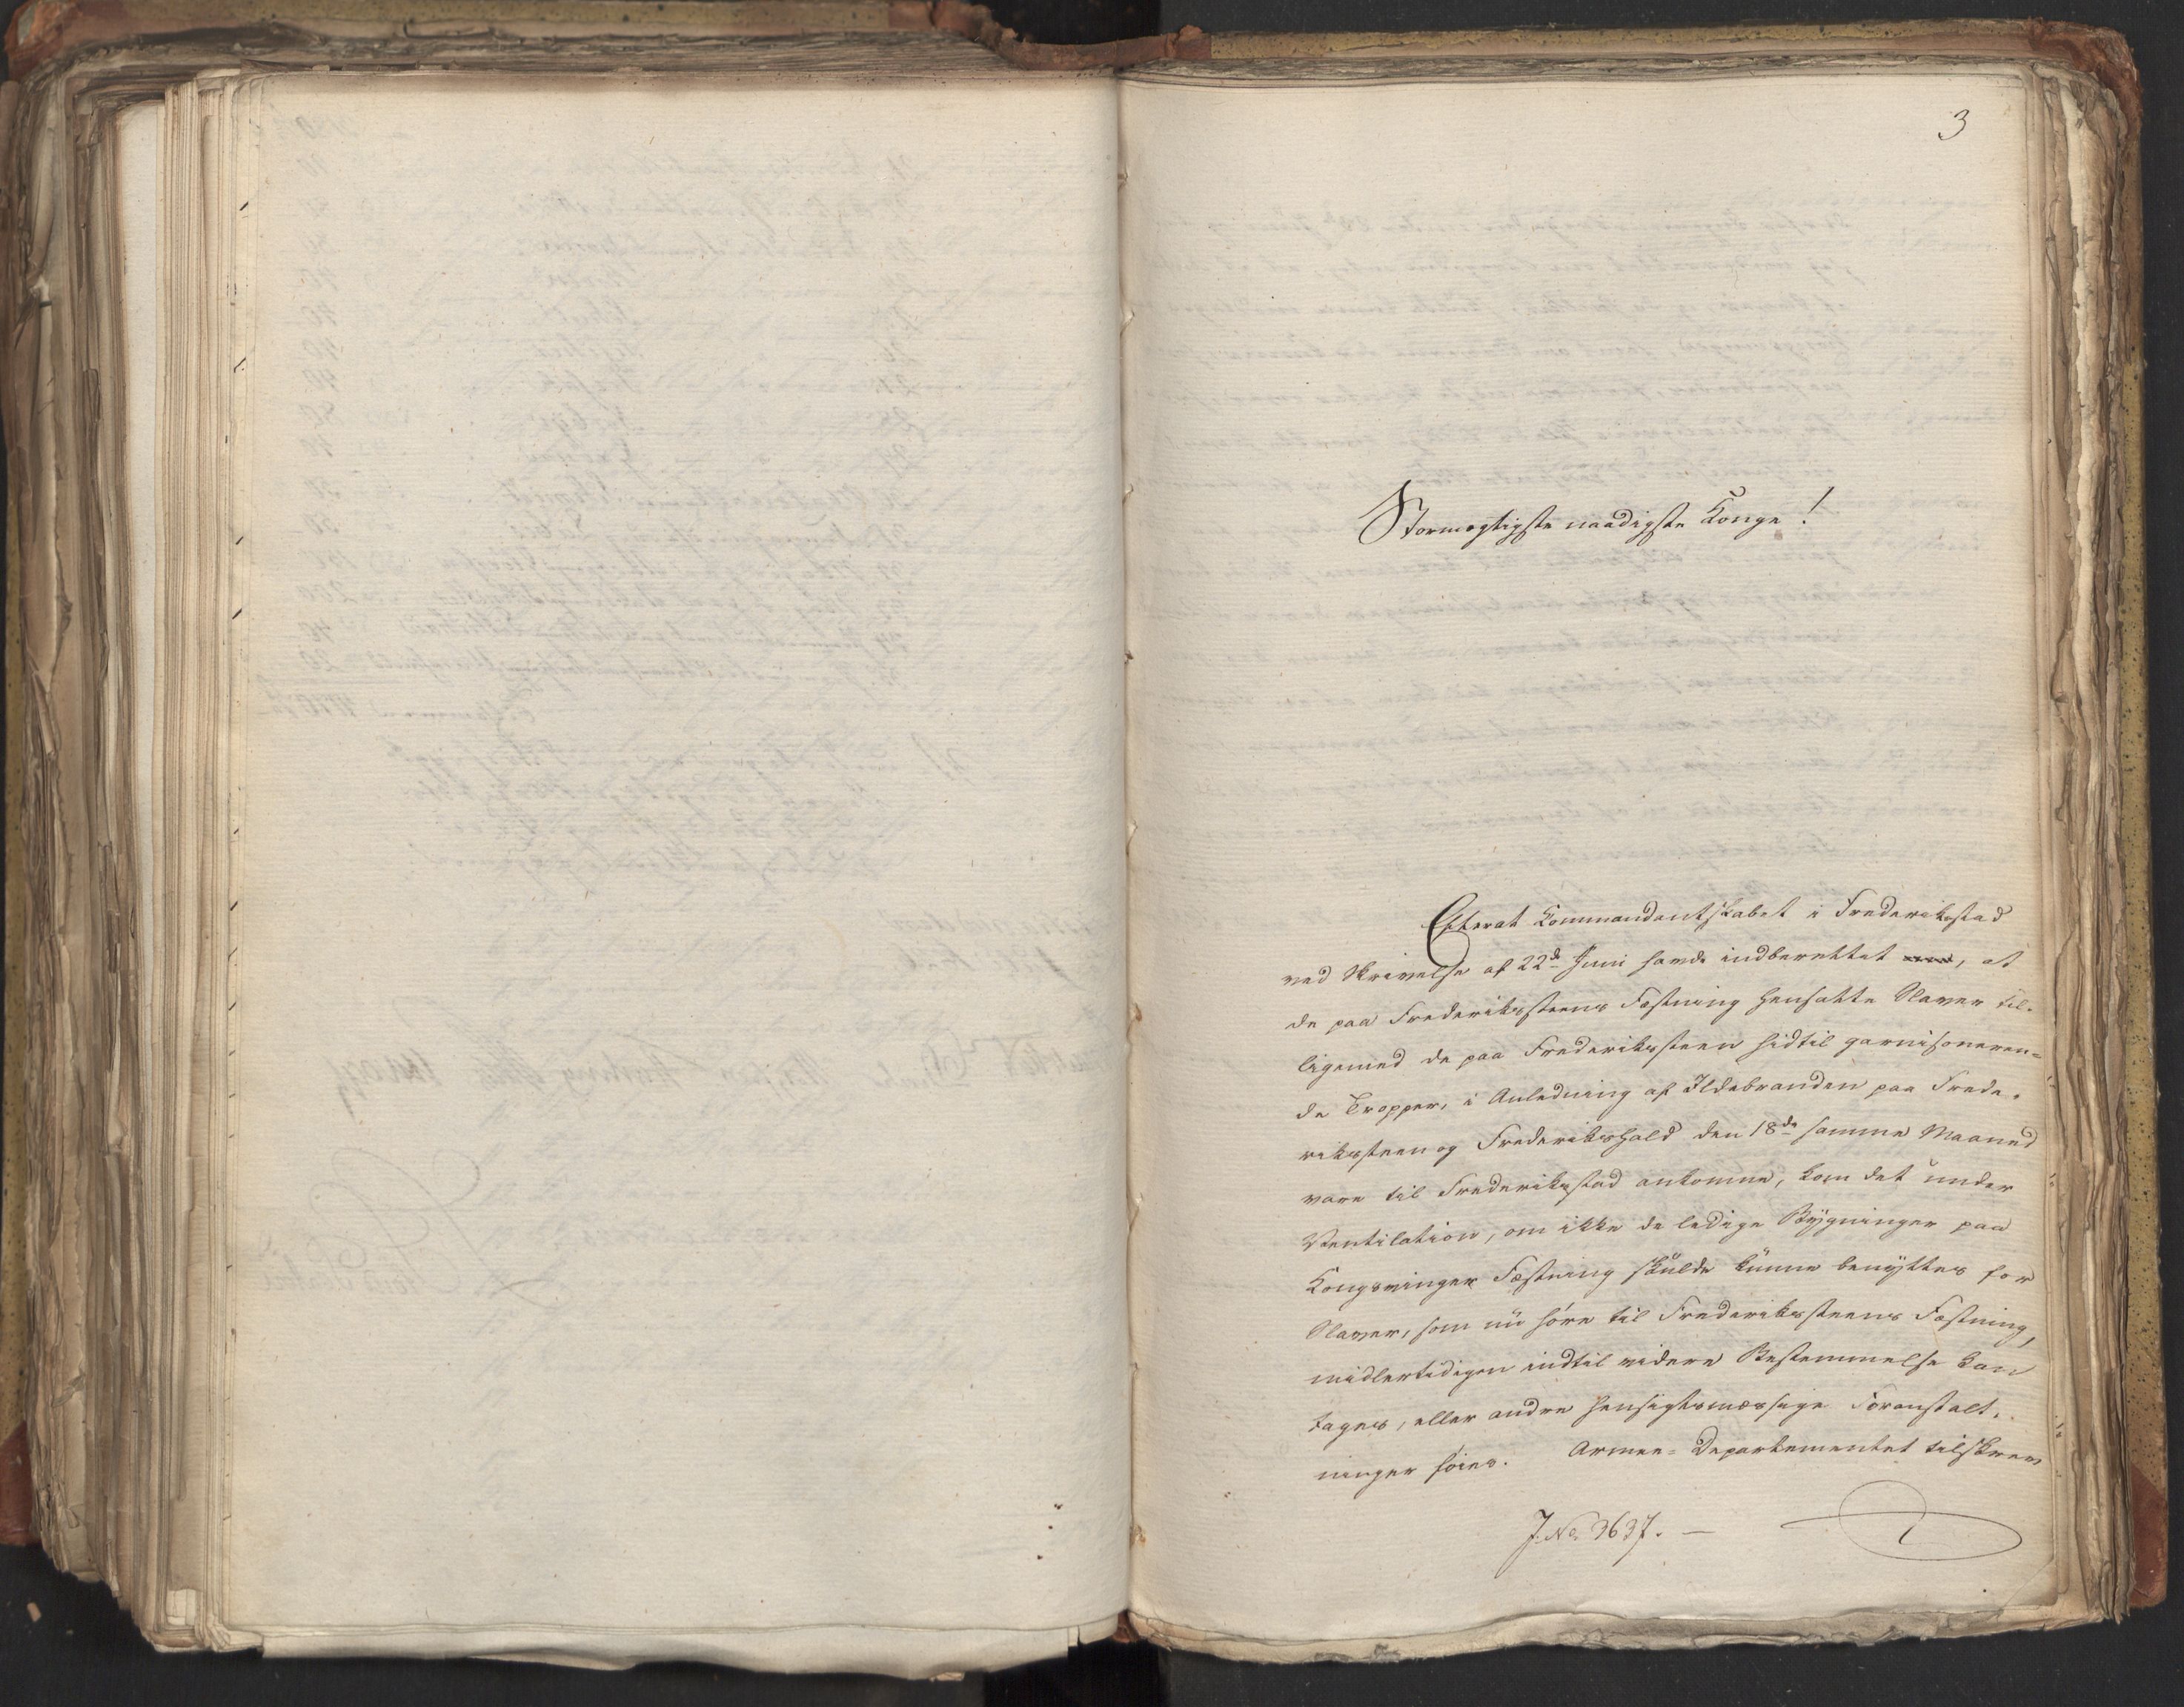 3
Stormægtigste naadigste Konge!
Efterat Kommandantskabet i Frederikstad
ved Skrivelse af 22de Juni havde indberettet, at
de paa Frederikssteens Fæstning hensatte Slaver til-
ligemed de paa Frederikssteen hidtil garnisoneren-
de Tropper, i Anledning af Ildebranden paa Frede-
rikssteen og Frederikshald den 18de samme Maaned
vare til Frederikstad ankomne, kom det under
Ventilation, om ikke de ledige Bygninger paa
Kongsvinger Fæstning skulde kunne benyttes for
Slaver, som nu høre til Frederikssteens Fæstning,
midlertidigen indtil videre Bestemmelse kan
tages, eller andre hensigtsmæssige Foranstalt-
ninger føies. Armee-Departementet tilskrev
J. No 3637. —